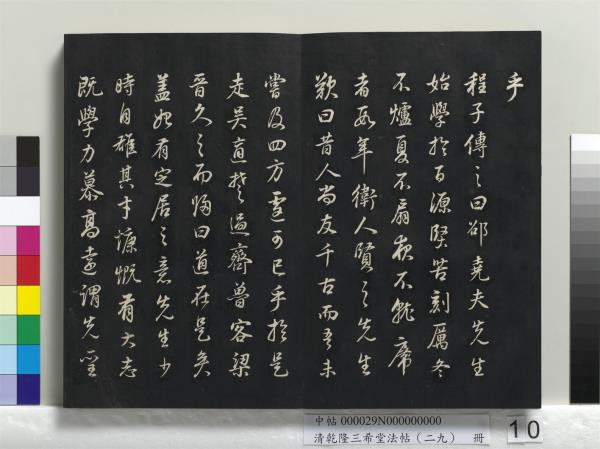 乎
程子傳之曰邵堯夫先生
始學於百源堅苦刻厲冬
不爐夏不扇夜不就席
者數年衛人賢之先生
歎曰昔人尚友千古而吾未
嘗及四方遽可已乎於是
走吳適楚過齊魯客梁
晉久之而歸曰道在是矣
蓋始有定居之意先生少
時自雄其才慷慨有大志
既學力慕高遠謂先聖
中帖 000029N000000000
清乾隆三希堂法帖(二九) 冊
10